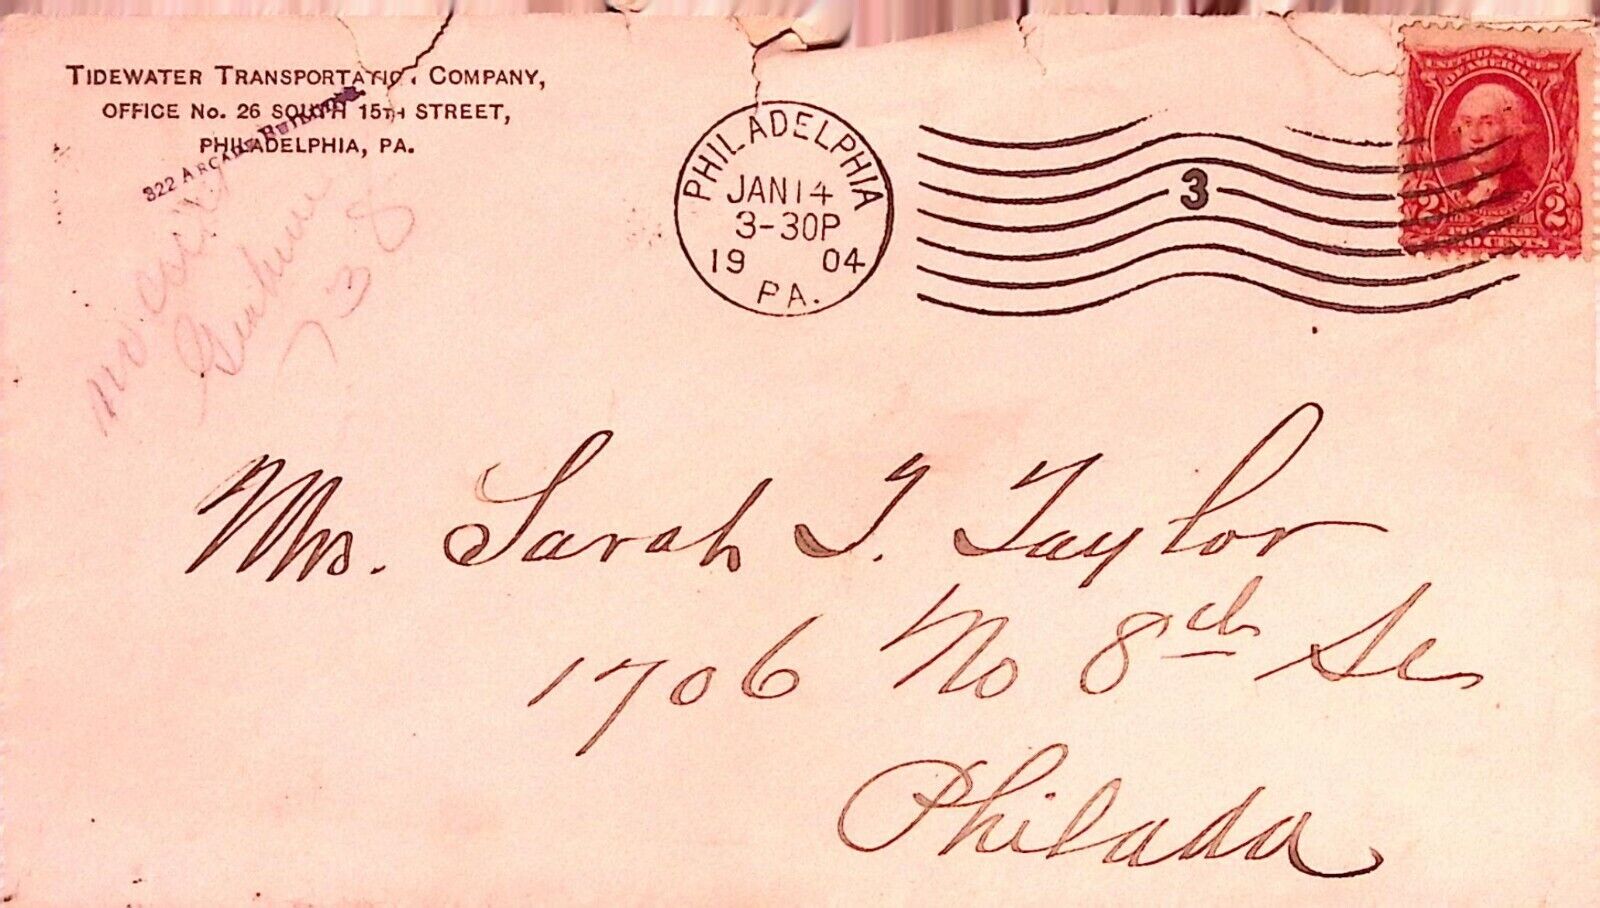 TIDEWATER TRANSPORTATION COMPANY,
OFFICE No. 26 SOUTH 15TH STREET,
PHILADELPHIA, PA.
322 ARCADE BUILDING.
738
PHILADELPHIA
JAN 14
3-30P
19 04
PA.
3
UNITED STATES
OF AMERICA
2 2
TWO CENTS
Mrs. Sarah T. Taylor
1706 No 8th St
Philada